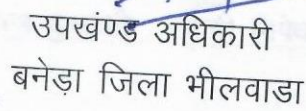 उपखंण्ड अधिकारी
बनेड़ा जिला भीलवाडा